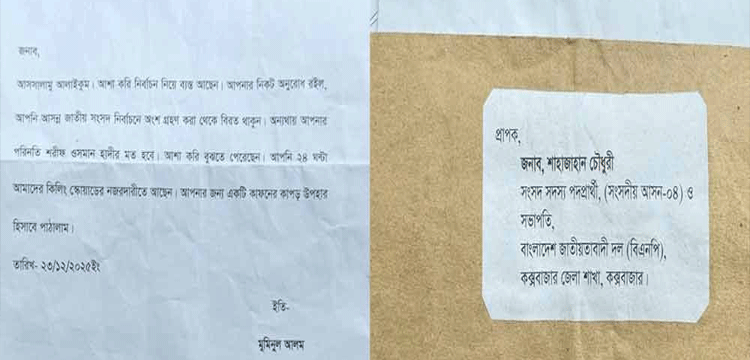 জনাব,
আসসালামু আলাইকুম। আশা করি নির্বাচন নিয়ে ব্যস্ত আছেন। আপনার নিকট অনুরোধ রইল,
আপনি আসন্ন জাতীয় সংসদ নির্বাচনে অংশ গ্রহণ করা থেকে বিরত থাকুন। অন্যথায় আপনার
পরিনতি শরীফ ওসমান হাদীর মত হবে। আশা করি বুঝতে পেরেছেন। আপনি ২৪ ঘন্টা
আমাদের কিলিং স্কোয়াডের নজরদারীতে আছেন। আপনার জন্য একটি কাফনের কাপড় উপহার
হিসাবে পাঠালাম।
তারিখ- ২৩/১২/২০২৫ইং
ইতি-
মুমিনুল আলম
প্রাপক,
জনাব, শাহাজাহান চৌধুরী
সংসদ সদস্য পদপ্রার্থী, (সংসদীয় আসন-০৪) ও
সভাপতি,
বাংলাদেশ জাতীয়তাবাদী দল (বিএনপি),
কক্সবাজার জেলা শাখা, কক্সবাজার।